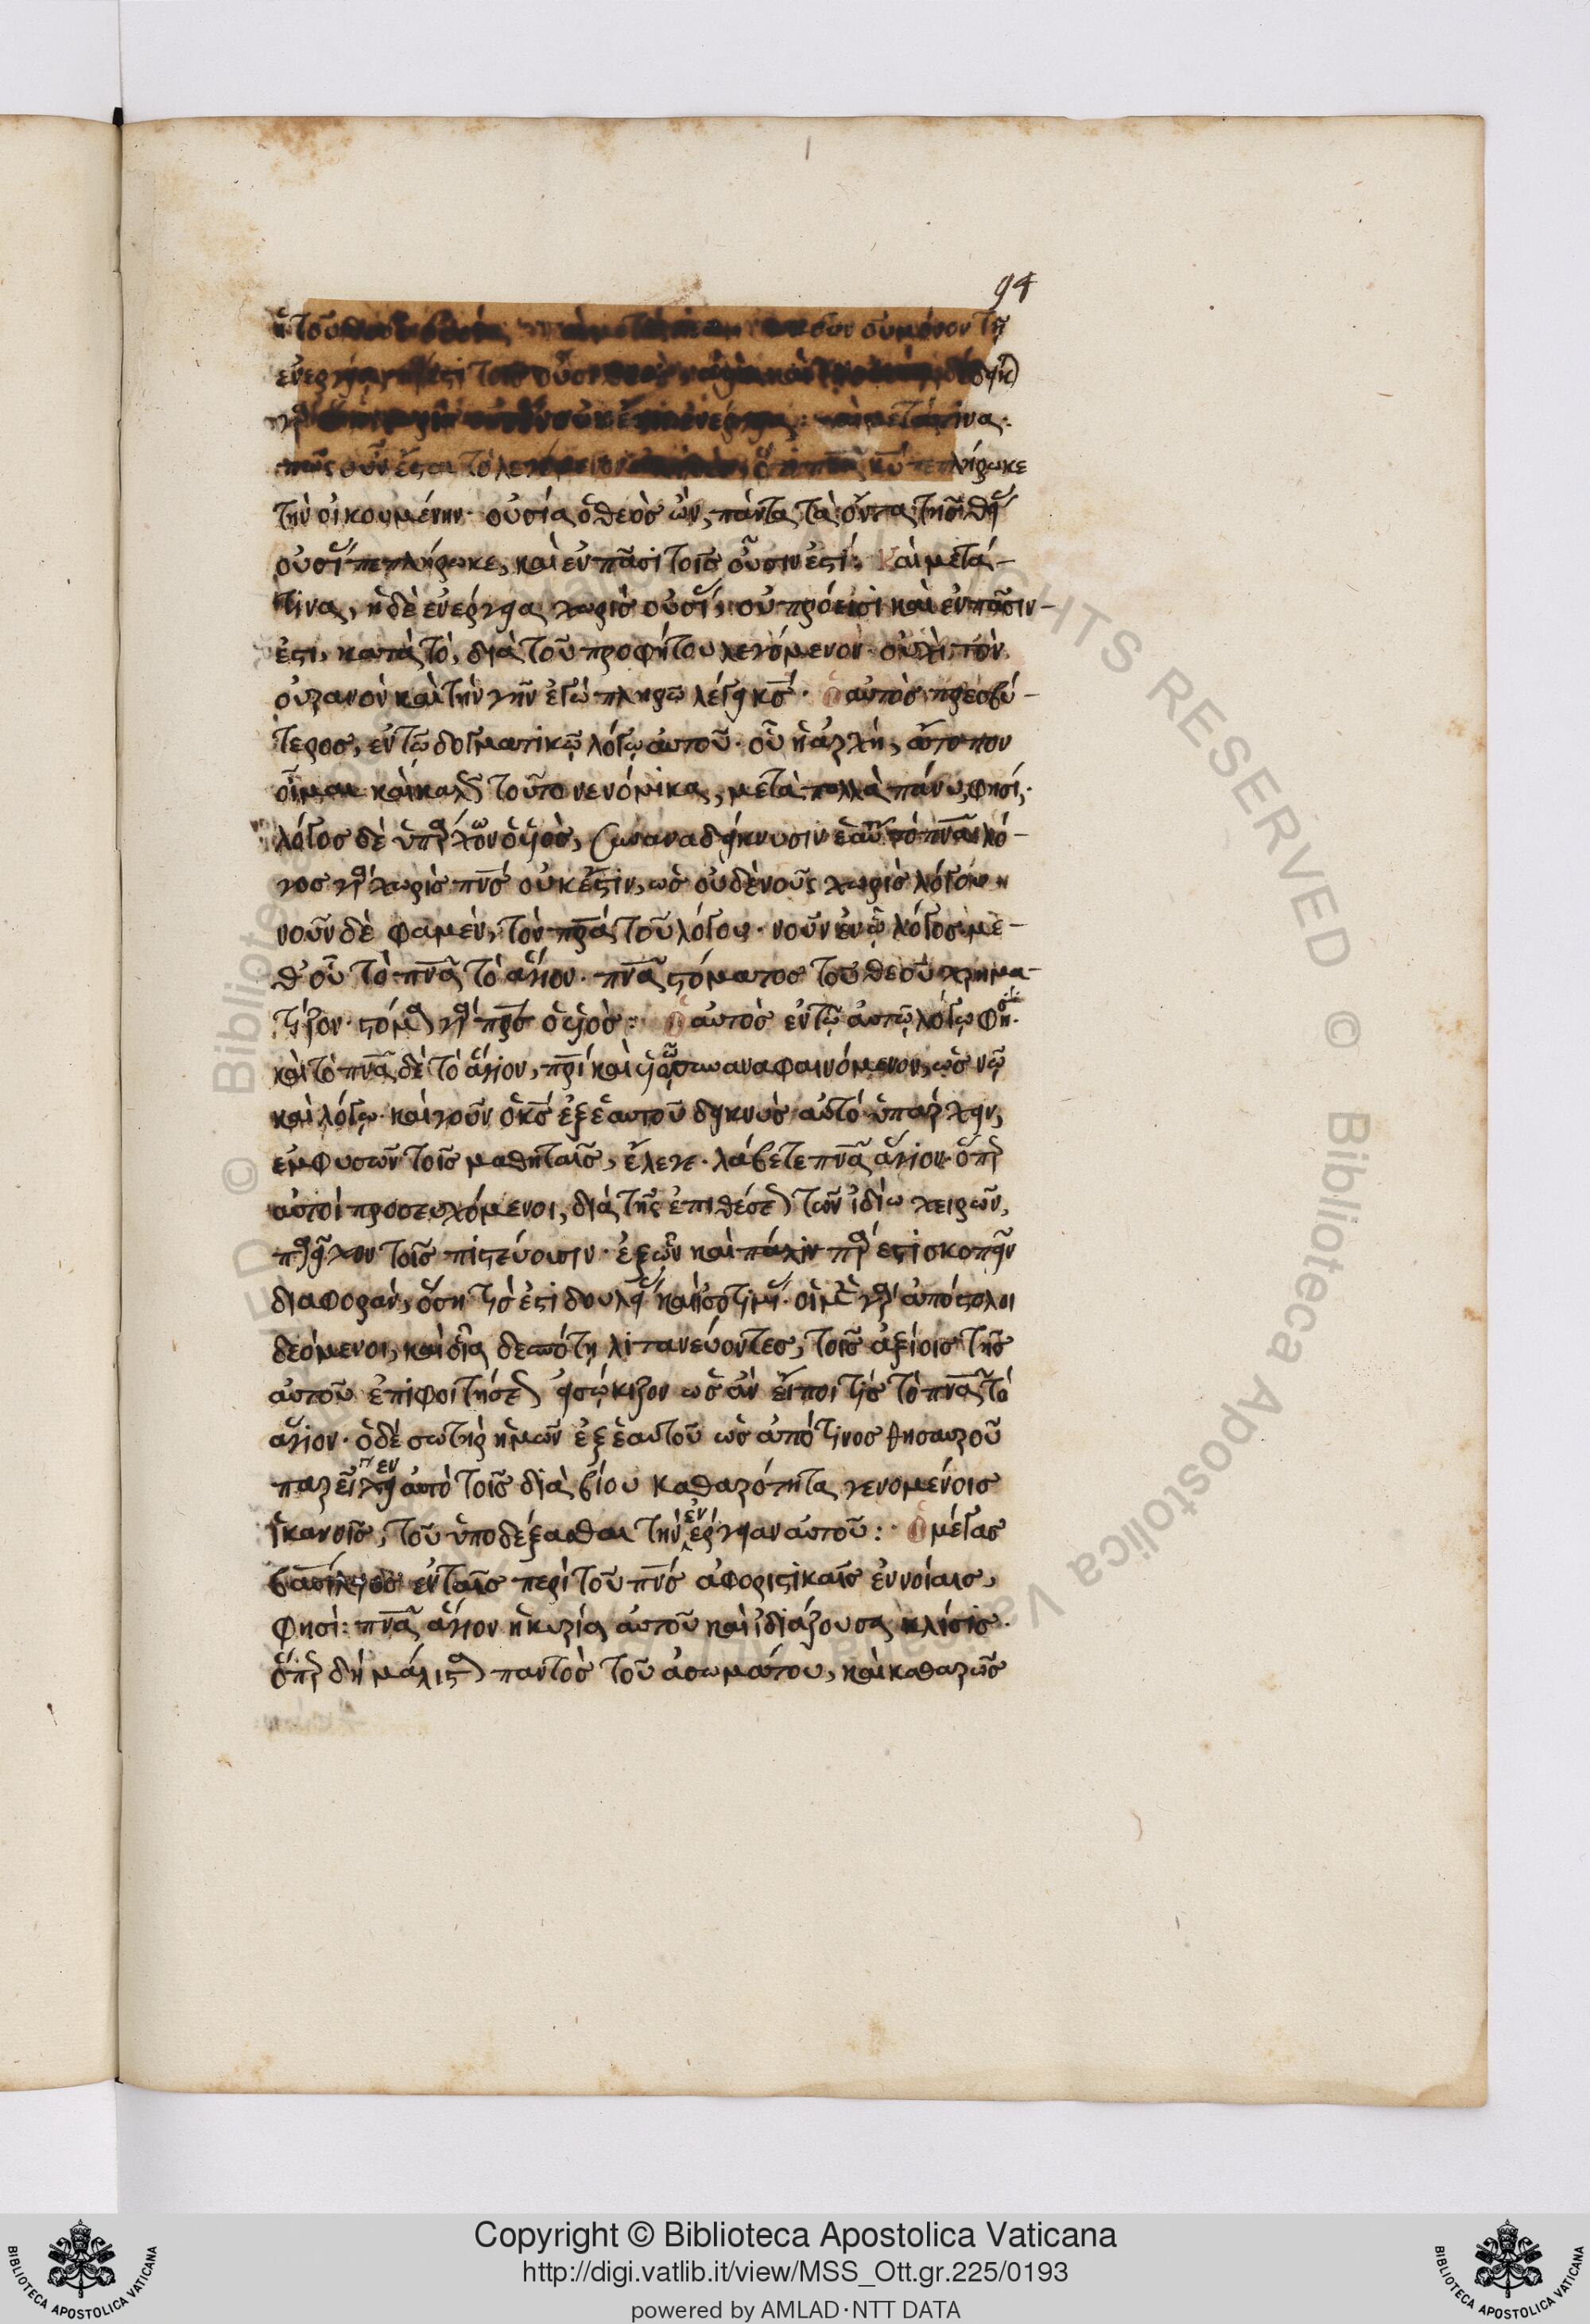 94
ἢ τοῦ οὐ μόνον τῇ
ἐνερ τοῖς οὖσι
οὐκ ἔστιν ἐνέρ : καὶ μετά τινα·
πῶς οὖν ἔσται τὸ λεγόμενον ὅτι πνα κυ πεπλήρωκε
τὴν οἰκουμένην· οὐσία ὁ θεὸς ὢν, πάντα τὰ ὄντα τῆς θεί
οὐσί πεπλήρωκε, καὶ ἐν πᾶσι τοῖς οὖσιν ἐστί: Καὶ μετά-
τινας, ἡ δὲ ἐνέργεια χωρὶς οὐσί, οὐ πρόεισι καὶ ἐν πᾶσιν-
ἐστι, κατὰ τὸ, διὰ τοῦ προφήτου λεγόμενον· οὐχὶ τὸν
οὐρανὸν καὶ τὴν γῆν ἐγὼ πληρῶ λέγει κς· Ὁ αὐτὸς πρεσβύ-
τερος, ἐν τῷ δογματικῷ λόγῳ αὐτοῦ· οὗ ἡ ἀρχή, ἄτοπον
οἶμαι καὶ τοῦτο νενόμικα, μετὰ πολλὰ πάνυ, φησί·
λόγος δὲ ὑπάρχων ὁ υἱὸς, ζῶν ἀναδείκνυσιν ἑαυτ τὸ πνα λό-
γος γὰρ χωρὶς πνς οὐκ ἔστιν, ὡς οὐδὲ νοῦς χωρὶς λόγου·
νοῦν δὲ φαμὲν, τὸν πρα τοῦ λόγου· νοῦν ἐν ᾧ λόγος με-
θ' οὗ τὸ πνα τὸ ἅγιον· πνα στόματος τοῦ θεοῦ χρημα-
τίζον· στόμα γὰρ πρς ὁ υἱὸς: Ὁ αὐτὸς ἐν τῷ αὐτῷ λόγῳ φη·
καὶ τὸ πνα δὲ τὸ ἅγιον, πρι καὶ υἱῷ ἀναφαινόμενον, ὡς νῷ
καὶ λόγῳ· καὶ γοῦν ὁ κς ἐξ ἑαυτοῦ δεικνὺς αὐτὸ ὑπάρχειν,
ἐμφυσῶν τοῖς μαθηταῖς, ἔλεγε· λάβετε πνα ἅγιον· ὅπερ
αὐτοὶ προσευχόμενοι, διὰ τῆς ἐπιθέσε τῶν ἰδίω χειρῶν,
παρεῖχον τοῖς πιστεύουσιν· ἐξ ὧν καὶ πάλιν πάρεστι σκοπεῖν
διαφορὰν, ὅση τίς ἐστι δουλεί καὶ ἰσοτιμί· οἱ μὲν γὰρ ἀπόστολοι
δεόμενοι, καὶ οἷα δεσπότη λιτανεύοντες, τοῖς ἀξίοις τῆς
αὐτοῦ ἐπιφοιτήσε εἰσῴκιζον ὡς ἂν εἴποι τίς τὸ πνα τὸ
ἅγιον· ὁ δὲ σωτὴρ ἡμῶν ἐξ ἑαυτοῦ ὡς ἀπό τινος θησαυροῦ
παρεῖχεν αὐτὸ τοῖς διὰ βίου καθαρότητα γενομένοις
ἱκανοῖς, τοῦ ὑποδέξασθαι τὴν ἐνέργειαν αὐτοῦ: Ὁ μέγας
βασίλειος ἐν ταῖς περὶ τοῦ πνς ἀφοριστικαῖς ἐννοίαις,
φησί: πνα ἅγιον ἡ κυρία αὐτοῦ καὶ ἰδιάζουσα κλίσις·
ὅπερ δὴ μάλιστα παντὸς τοῦ ἀσωμάτου, καὶ καθαρῶς
© Biblioteca Apostolica Vaticana
RIGHTS RESERVED
Copyright © Biblioteca Apostolica Vaticana
http://digi.vatlib.it/view/MSS_Ott.gr.225/0193
powered by AMLAD·NTT DATA
BIBLIOTECA APOSTOLICA VATICANA
BIBLIOTECA APOSTOLICA VATICANA